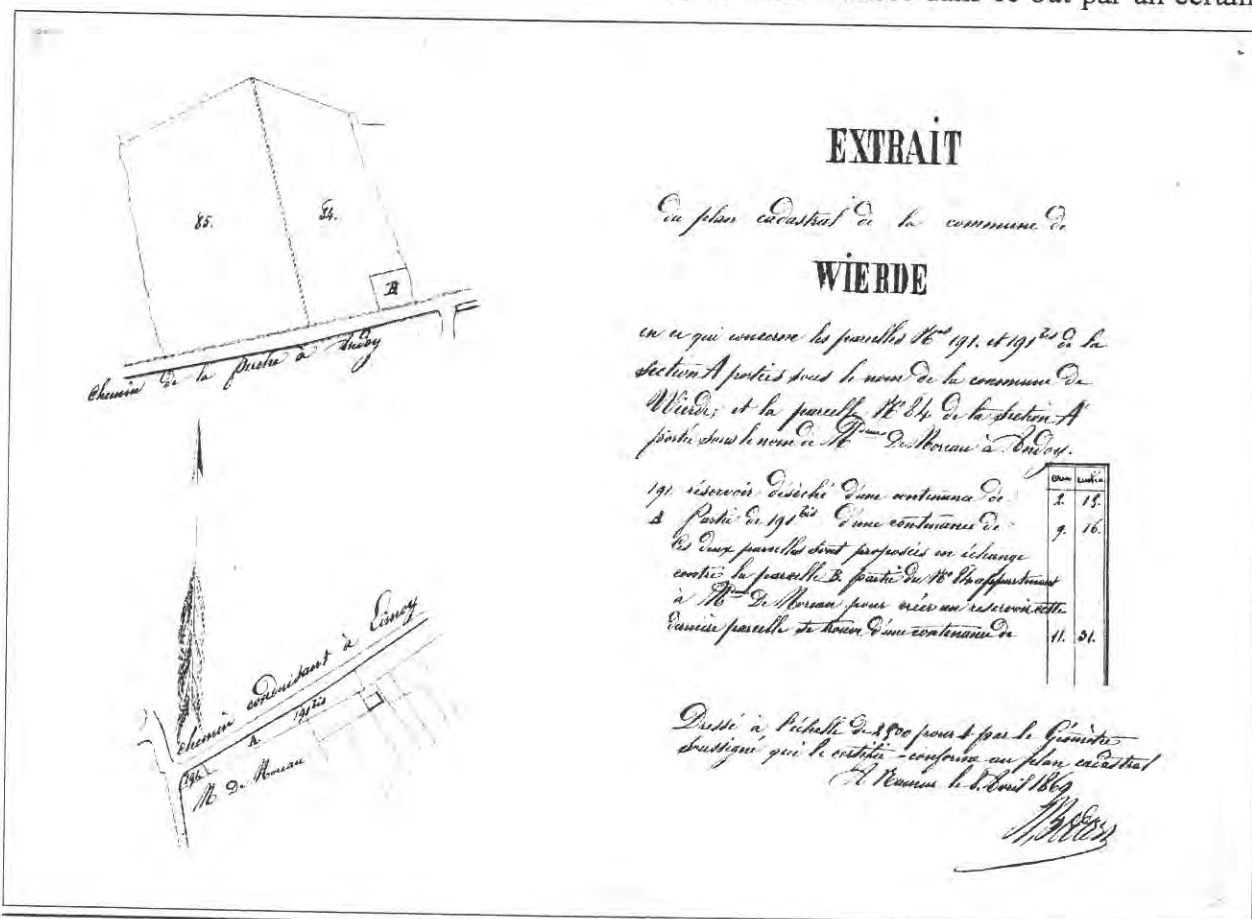 dans ce but par un certain
85.
84.
B
Chemin de la à Andoy
Chemin conduisant à Limoy
191bis
A.
191.
M. De Moreau
EXTRAIT
du plan cadastral de la commune de
WIERDE
en ce qui concerne les parcelles Nos 191. et 191bis de la
section A portées sous le nom de la commune de
Wierde; et la parcelle No 84 de la section A
portée sous le nom de De Moreau à Andoy.
ares centia
191. réservoir déséché d'une contenance de 2. 15.
A Partie de 191bis d'une contenance de 9. 16.
Ces deux parcelles sont proposées en échange
contre la parcelle B. partie du No 84 appartenant
à De Moreau pour créer un reservoir cette
dernière parcelle se trouve d'une contenance de 11. 31.
Dressé à l'échelle de 2500 pour 1 par le Géomètre
soussigné qui le certifie conforme au plan cadastral
A Namur le 8. Avril 1869